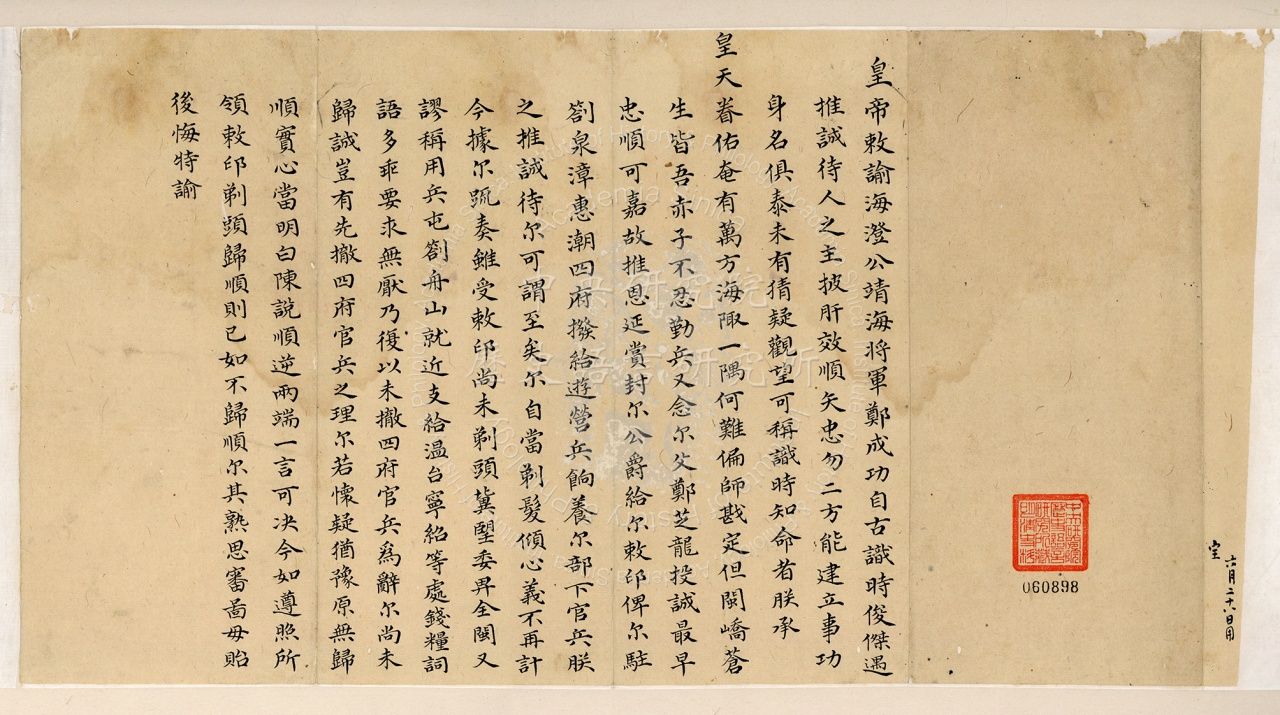 六月二十八日用
060898
皇帝敕諭海澄公靖海將軍鄭成功自古識時俊傑遇
推誠待人之主披肝效順矢忠勿二方能建立事功
身名俱泰未有猜疑觀望可稱識時知命者朕承
皇天眷佑奄有萬方海陬一隅何難偏師戡定但閩嶠蒼
生皆吾赤子不忍勤兵又念尔父鄭芝龍投誠最早
忠順可嘉故推恩延賞封尔公爵給尔敕印俾尔駐
劄泉漳惠潮四府撥給遊營兵餉養尔部下官兵朕
之推誠待尔可謂至矣尔自當剃髮傾心義不再計
今據尔疏奏雖受敕印尚未剃頭冀朢委畀全閩又
謬稱用兵屯劄舟山就近支給温台寧紹等處錢糧詞
語多乖要求無厭乃復以未撤四府官兵為辭尔尚未
歸誠豈有先撤四府官兵之理尔若懷疑猶豫原無歸
順實心當明白陳說順逆兩端一言可决今如遵照所
領敕印剃頭歸順則已如不歸順尔其熟思審啚毋貽
後悔特諭